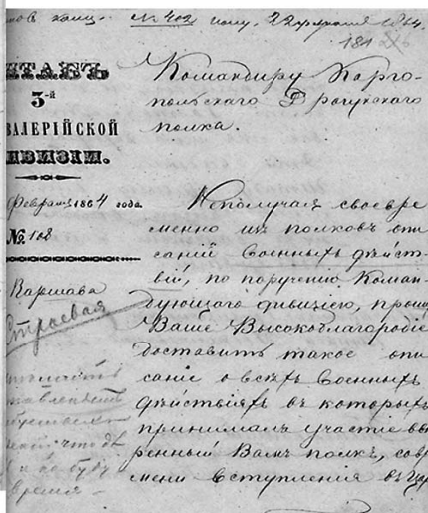 № 402 полу. 22 февраля 1864.
181
ШТАБЪ
3-й
ВАЛЕРІЙСКОЙ
ИВИЗІИ.
Февраля 1864 года.
№ 108
Варшава
Строевая
Командиру Карго-
польскаго Драгунскаго
полка.
Неполучая своевре
менно изъ полковъ опи
саній военныхъ дѣйст-
вій, по порученію Коман-
дующаго дивизіею, прошу
Ваше Высокоблагородіе
доставить такое опи
саніе о всѣхъ военныхъ
дѣйствіяхъ въ которыхъ
принималъ участіе ввѣ
ренный Вамъ полкъ, совре
мени вступленія въ Цар
время